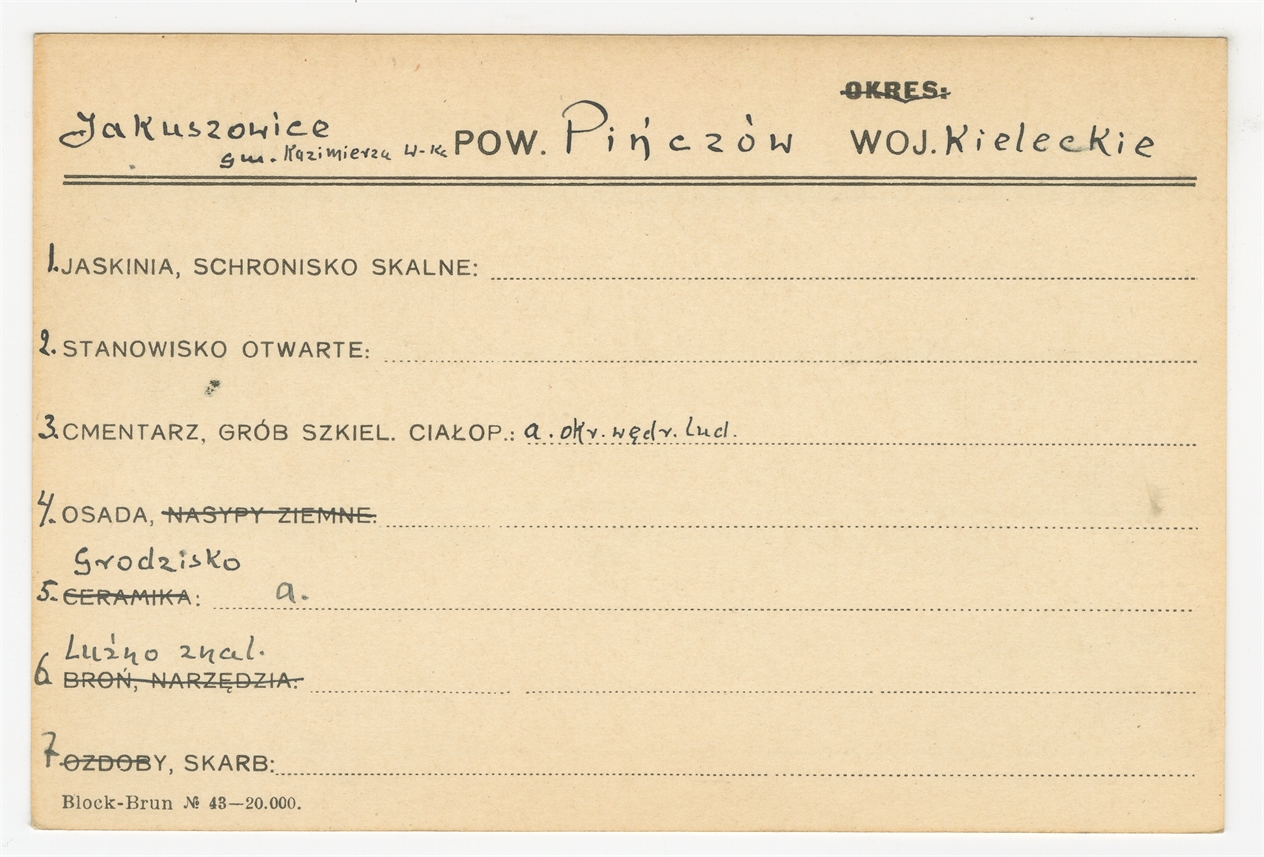 OKRES:
Jakuszowice POW. Pińczów WOJ. Kieleckie
gm. Kazimierza W-ka
1. JASKINIA, SCHRONISKO SKALNE:
2. STANOWISKO OTWARTE:
3. CMENTARZ, GRÓB SZKIEL. CIAŁOP.: a. okr. wędr. lud.
4. OSADA, NASYPY ZIEMNE:
Grodzisko
5. CERAMIKA: a.
Luźno znal.
6 BROŃ, NARZĘDZIA:
7 OZDOBY, SKARB:
Block-Brun № 43—20.000.